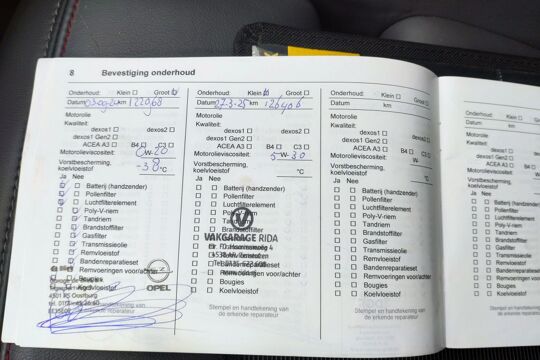 8 Bevestiging onderhoud
Onderhoud: Klein Groot
Datum km 122968
Motorolie
Kwaliteit:
dexos1 dexos2
dexos1 Gen2
ACEA A3 B4 C3
Motorolieviscositeit: 0 W- 20
Vorstbescherming, koelvloeistof -38 °C
Ja Nee
Batterij (handzender)
Pollenfilter
Luchtfilterelement
Poly-V-riem
Tandriem
Brandstoffilter
Gasfilter
Transmissieolie
Bandenreparatieset
Remvoeringen voor/achter
Bougies
Koelvloeistof
OPEL
4501 RS Oostburg
Stempel en handtekening van
de erkende reparateur
Onderhoud: Klein Groot
Datum 27-3-25 km 126406
Motorolie
Kwaliteit:
dexos1 dexos2
dexos1 Gen2
ACEA A3 B4 C3
Motorolieviscositeit: 5 W- 30
Vorstbescherming,
koelvloeistof °C
Ja Nee
Batterij (handzender)
Pollenfilter
Luchtfilterelement
Poly-V-riem
Tandriem
Brandstoffilter
VAKGARAGE RIDA
Gasfilter
Transmissieolie
Bandenreparatieset
Remvoeringen voor/achter
Bougies
Koelvloeistof
Stempel en handtekening van
de erkende reparateur
Onderhoud: Klein Groot
Datum km
Motorolie
Kwaliteit:
dexos1 dexos2
dexos1 Gen2
ACEA A3 B4 C3
Motorolieviscositeit: W-
Vorstbescherming,
koelvloeistof °C
Ja Nee
Batterij (handzender)
Pollenfilter
Luchtfilterelement
Poly-V-riem
Tandriem
Brandstoffilter
Gasfilter
Transmissieolie
Bandenreparatieset
Remvoeringen voor/achter
Bougies
Koelvloeistof
Stempel en handtekening van
de erkende reparateur
Onderhoud: Klein
Datum
Motorolie
Kwaliteit:
dexos1
dexos1 Gen2
ACEA A3
Motorolieviscositeit:
Vorstbescherming,
koelvloeistof
Ja Nee